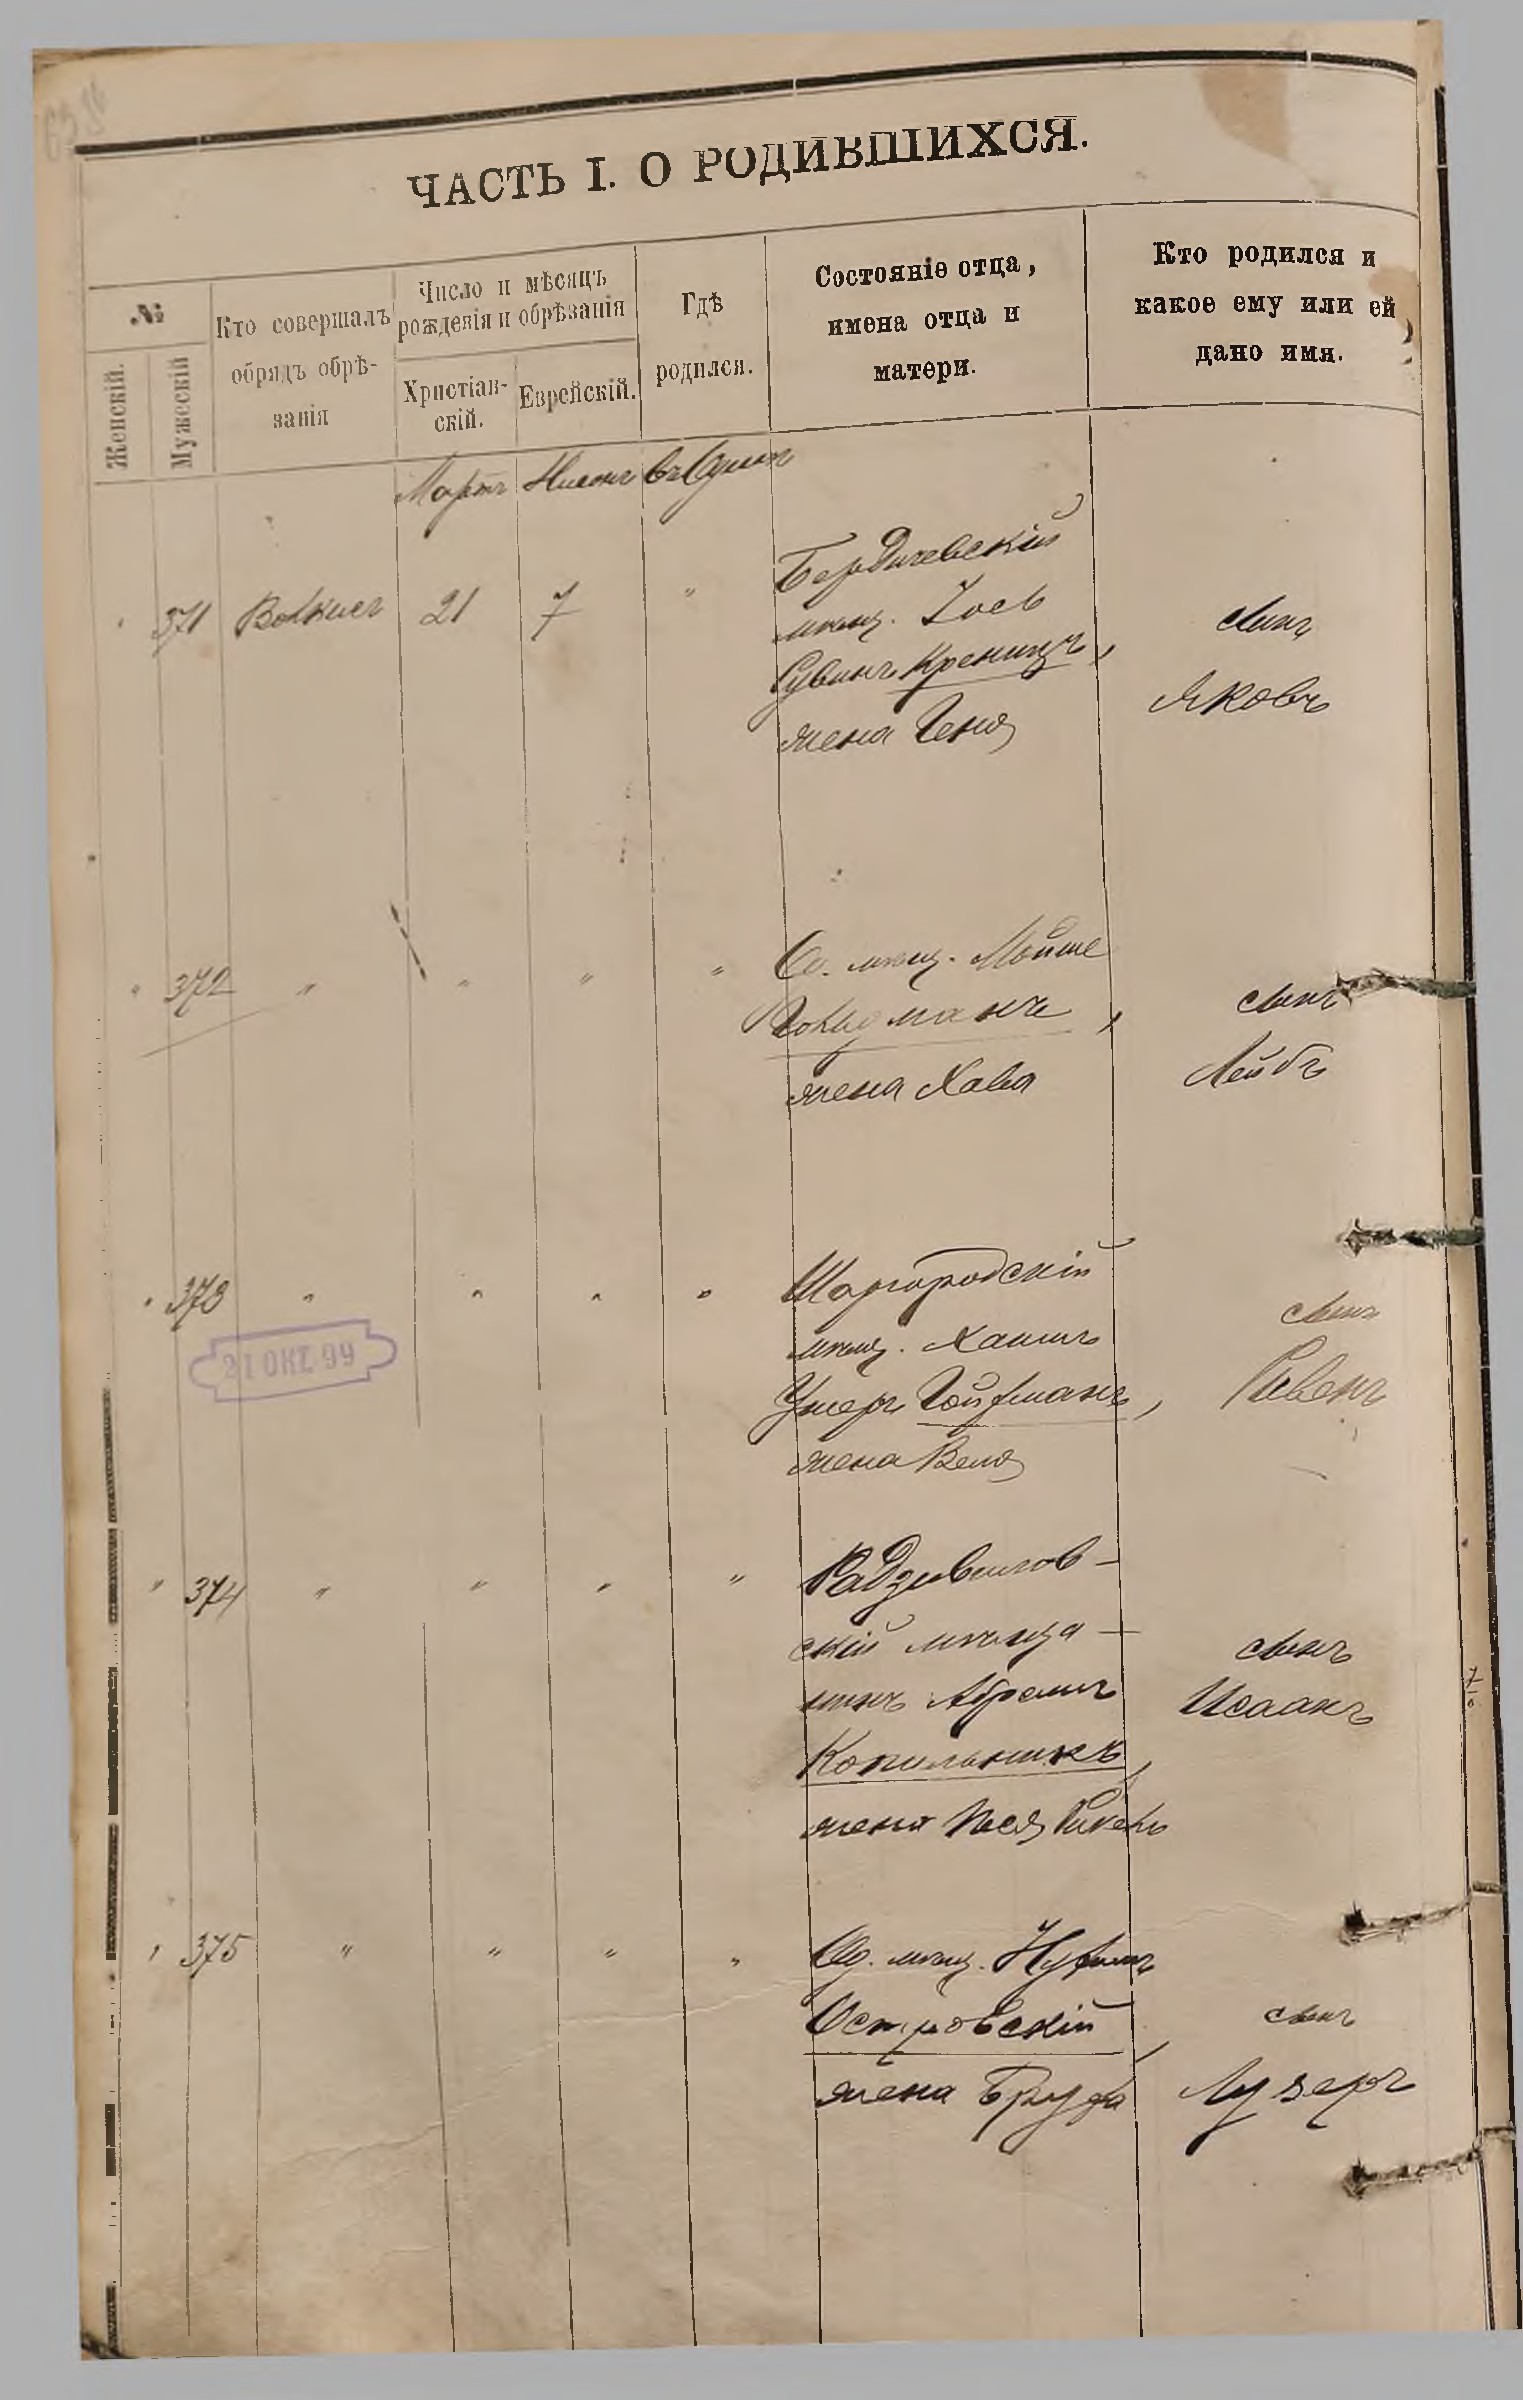 ЧАСТЬ I. О РОДИВШИХСЯ.
№
Женскій.
Мужескій
Кто совершалъ
обрядъ обрѣ-
занія
Число и мѣсяцъ
рожденія и обрѣзанія
Христіан-
скій.
Еврейскій.
Гдѣ
родился.
Состояніе отца,
имена отца и
матери.
Кто родился и
какое ему или ей
дано имя.
Мартъ Нисонъ
" 371 Волкисъ 21 7 "
Бердичевскій
мѣщ. Іось
Рувинъ Креницъ,
жена Геня
сынъ
Яковъ
" 372 " " " "
Од. мѣщ. Мойше
Гольдманъ,
жена Хава
сынъ
Лейбъ
" 373 " " " "
21 ОКТ 99
Шаргородскій
мѣщ. Хаимъ
Ушеръ Гойфманъ,
жена Веля
сынъ
" 374 " " " "
Радзивилов-
скій мѣща-
нинъ Абрамъ
Копильникъ,
жена Песя
сынъ
Исаакъ
" 375 " " " "
Од. мѣщ. Нухимъ
Островскій,
жена Бруха
сынъ
Лузеръ